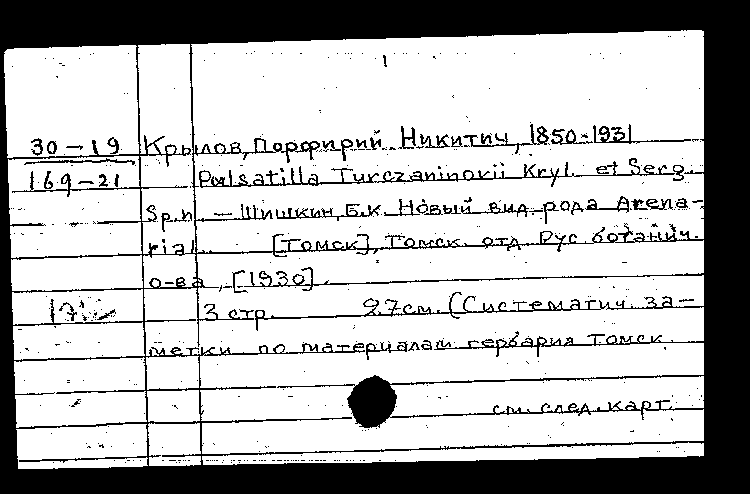 30-19 Крылов, Порфирий Никитич, 1850-1931
169-21 Pulsatilla Turczaninovii Kryl. et Serg.
Sp.n. — Шишкин, Б.К. Новый вид рода Arena-
rial. [Томск], Томск. отд. Рус. ботанич.
о-ва, [1930].
3 стр. 27см. (Систематич. за-
метки по материалам гербария Томск.
см. след. карт.